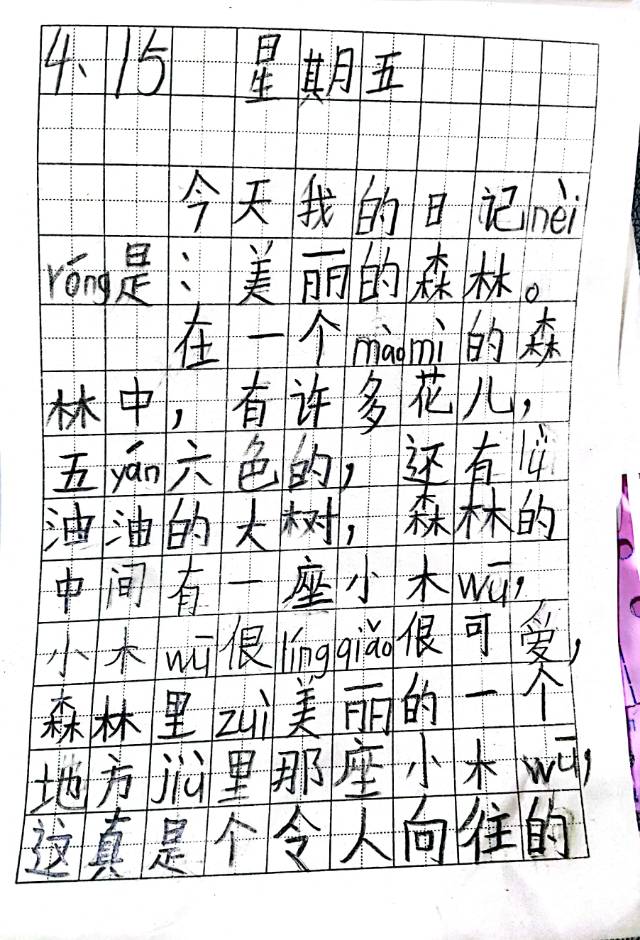 4、15 星期五
今天我的日记nèi
róng是：美丽的森林。
在一个màomì的森
林中，有许多花儿，
五yán六色的，还有lǜ
油油的大树，森林的
中间有一座小木wū，
小木wū很língqiǎo很可爱，
森林里zuì美丽的一个
地方jiù里那座小木wū，
这真是个令人向往的